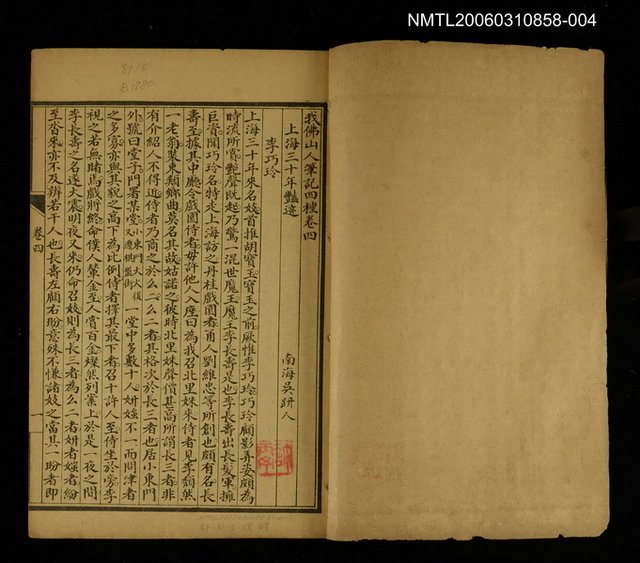 NMTL20060310858-004
我佛山人筆記四種卷四
上海三十年艷迹
南海吳趼人
李巧玲
上海三十年來名妓首推胡寶玉寶玉之前厥惟李巧玲巧玲顧影弄姿頗為
時流所賞艷聲既起乃驚一混世魔王魔王李長壽是也李長壽出長髮軍擁
巨資聞巧玲名特走上海訪之丹桂戲園者甬人劉維忠等所創也頗有名長
壽至據其中廳令戲園侍者毋許他人入座曰為我召北里妹來侍者見李頹然
一老翁裝束類鄉曲莫名其故姑諾之彼時北里妹聲價甚高所謂長三者非
有介紹人不得近侍者乃商之於么二么二者其格次於長三者也居小東門
外號曰堂子門者某堂小東門大火後又遷棋盤街一堂中多數十人妍媸不一而問津者
之多寡亦與其貌之高下為比例侍者擇其最下者召十許人至侍坐於旁李
視之若無賭馬戲將終命僕人輦金至人賞百金燦然列案上於是一夜之間
李長壽之名遂大震明夜又來仍命召妓則為長三者為么二者妍者媸者紛
至沓來亦不及辨若干人也長壽左顧右盼意殊不慊諸妓之當其一盼者即
卷四
一